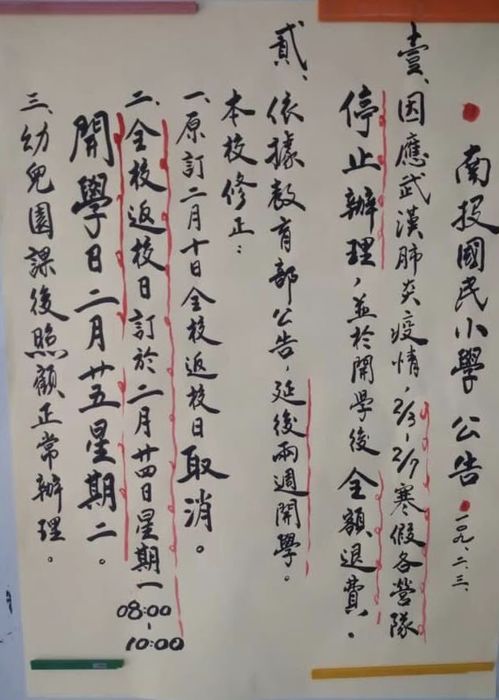 南投國民小學 公告 一〇九、二、三、
壹、因應武漢肺炎疫情，2/3-2/7寒假各營隊
停止辦理，並於開學後全額退費。
貳、依據教育部公告，延後兩週開學。
本校修正：
一、原訂二月十日全校返校日取消。
二、全校返校日訂於二月廿四日星期一
08:00-10:00
開學日二月廿五星期二。
三、幼兒園課後照顧正常辦理。